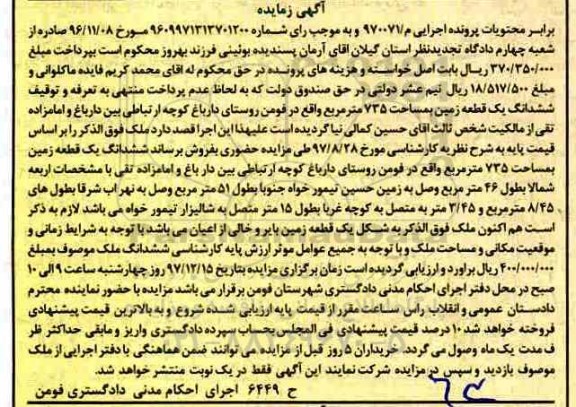 آگهی زمایده
برابر محتویات پرونده اجرایی م/۹۷۰۰۷۱ و به موجب رای شماره ۹۶۰۹۹۷۱۳۱۳۷۰۱۲۰۰ مورخ ۹۶/۱۱/۰۸ صادره از
شعبه چهارم دادگاه تجدیدنظر استان گیلان اقای آرمان پسندیده بوئینی فرزند بهروز محکوم است بپرداخت مبلغ
۳۷۰/۳۵۰/۰۰۰ ریال بابت اصل خواسته و هزینه های پرونده در حق محکوم له اقای محمد کریم فایده ماکلوانی و
مبلغ ۱۸/۵۱۷/۵۰۰ ریال نیم عشر دولتی در حق صندوق دولت که به لحاظ عدم پرداخت منتهی به تعرفه و توقیف
ششدانگ یک قطعه زمین بمساحت ۷۳۵ مترمربع واقع در فومن روستای دارباغ کوچه ارتباطی بین دارباغ و امامزاده
تقی از مالکیت شخص ثالث اقای حسین کمالی نیا گردیده است علیهذا این اجرا قصد دارد ملک فوق الذکر را بر اساس
قیمت پایه به شرح نظریه کارشناسی مورخ ۹۷/۸/۲۸ طی مزایده حضوری بفروش برساند ششدانگ یک قطعه زمین
بمساحت ۷۳۵ مترمربع واقع در فومن روستای دارباغ کوچه ارتباطی بین دار باغ و امامزاده تقی با مشخصات اربعه
شمالا بطول ۴۶ متر مربع وصل به زمین حسین تیمور خواه جنوبا بطول ۵۱ متر مربع وصل به نهر اب شرقا بطول های
۸/۴۵ مترمربع و ۳/۴۵ متر به متصل به کوچه غربا بطول ۱۵ متر متصل به شالیزار تیمور خواه می باشد لازم به ذکر
است هم اکنون ملک فوق الذکر به شکل یک قطعه زمین بایر و خالی از اعیان می باشد با توجه به شرایط زمانی و
موقعیت مکانی و مساحت ملک و با توجه به جمیع عوامل موثر ارزش پایه کارشناسی ششدانگ ملک موصوف بمبلغ
۴۰۰/۰۰۰/۰۰۰ ریال براورد و ارزیابی گردیده است زمان برگزاری مزایده بتاریخ ۹۷/۱۲/۱۵ روز چهارشنبه ساعت ۹ الی ۱۰
صبح در محل دفتر اجرای احکام مدنی دادگستری شهرستان فومن برقرار می باشد مزایده با حضور نماینده محترم
دادستان عمومی و انقلاب راس ساعت مقرر از قیمت پایه ارزیابی شده شروع و به بالاترین قیمت پیشنهادی
فروخته خواهد شد ۱۰ درصد قیمت پیشنهادی فی المجلس بحساب سپرده دادگستری واریز و مابقی حداکثر ظر
ف مدت یک ماه وصول می گردد. خریداران ۵ روز قبل از مزایده می توانند ضمن هماهنگی با دفتر اجرایی از ملک
موصوف بازدید و سپس در مزایده شرکت نمایند این آگهی فقط در یک نوبت منتشر خواهد شد.
ح ۶۴۴۹ اجرای احکام مدنی دادگستری فومن